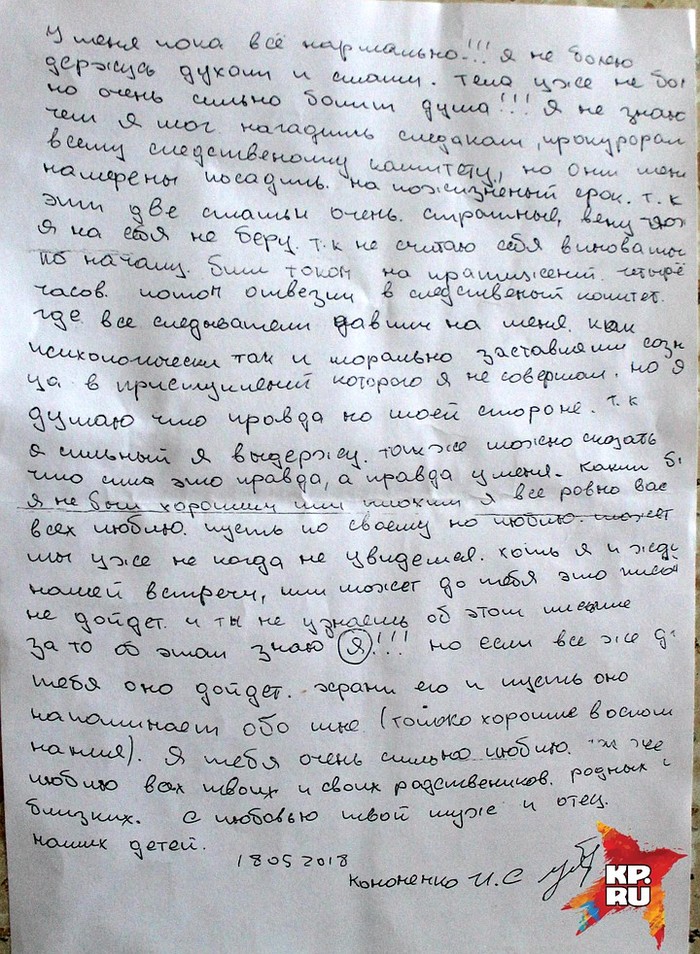 У меня пока всё нармально!!! я не болею
держусь духом и
тела уже не бол
но очень сильно болит душа!!! Я не знаю
чем я мог нагадить следакам, прокурорам
всему следственому камитету, но они меня
намерены посадить. на пожизненый срок. т.к
эти две статьи очень. страшные, вену
Я на себя не беру. т.к не считаю себя виноваты
по началу. били током на пратяжений. четырё
часов. потом отвезли в следственый комитет.
где все следыватели давили на меня. как
психологически так и морально заставляли созн
ца в приступлений которого я не совершал. но я
думаю что правда на моей стороне. т.к
я сильный я выдержу. тоже можно сказать
что сила это правда, а правда у меня. каким б
я не был хорошим или плохим я все ровно вас
всех люблю. пусть по своему но люблю. может
мы уже не когда не увидемся. хоть я и жду
нашей встречи, или может до тебя это письм
не дойдет. и ты не узнаешь об этом письме
за то об этом знаю я!!! но если все же д
тебя оно дойдет. храни его и пусть оно
напоминает обо мне (только хорошие воспом
нания). Я тебя очень сильно люблю. так же
люблю всех твоих и своих радствеников. родных и
близких. с любовью твой муж и отец.
наших детей.
18 05 2018
Кононенко И.С
KP.
RU